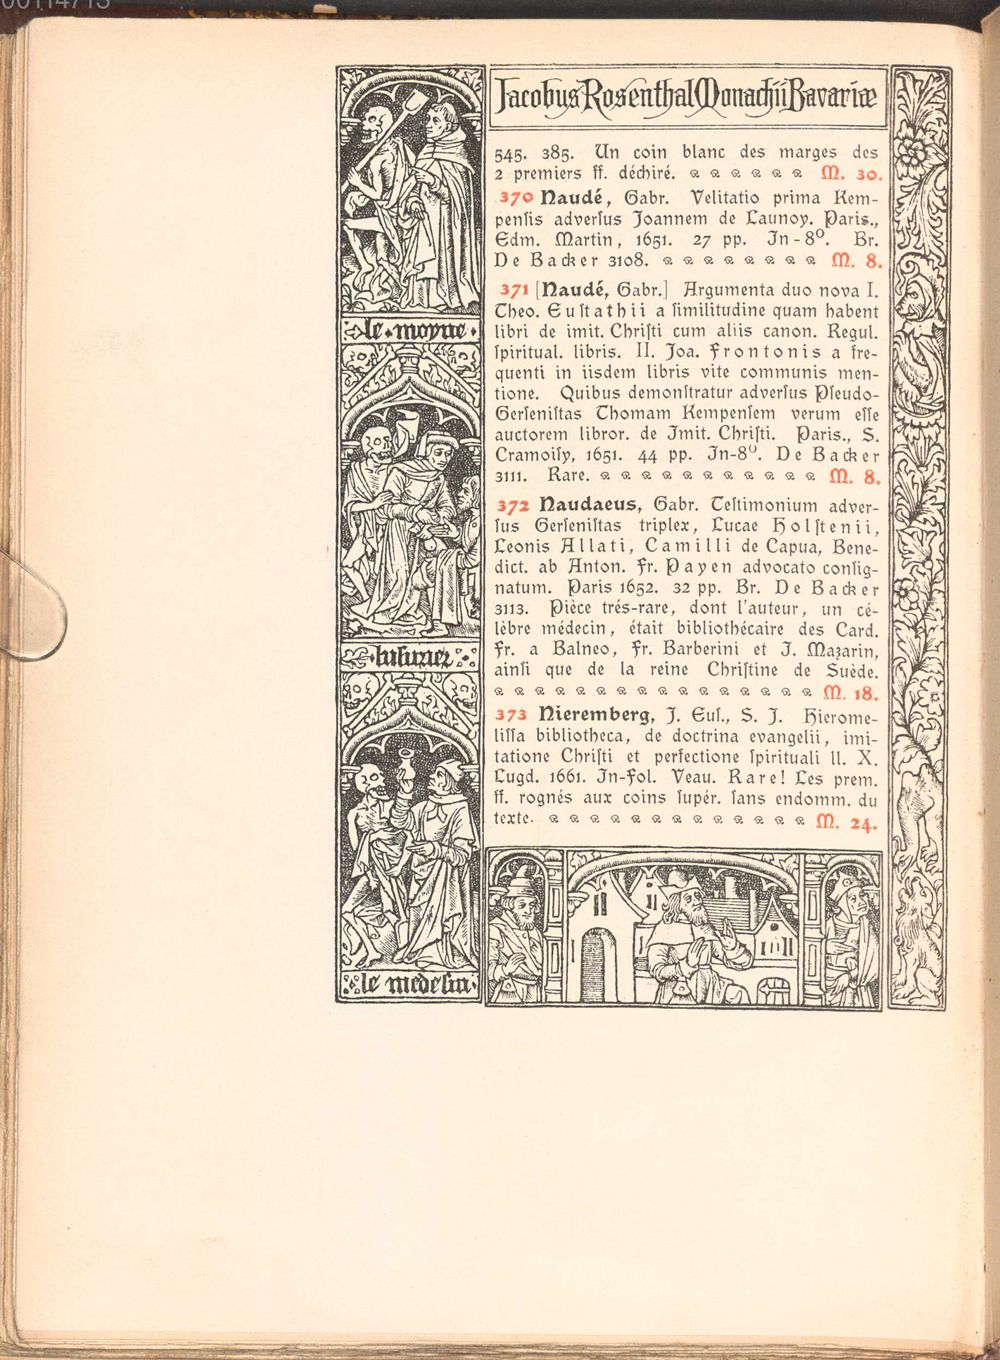 00114715
Jacobus Rosenthal Monachii Bavariæ
545. 385. Un coin blanc des marges des
2 premiers ff. déchiré. M. 30.
370 Naudé, Gabr. Velitatio prima Kem-
penſis adverſus Joannem de Launoy. Paris.,
Edm. Martin, 1651. 27 pp. In-8⁰. Br.
De Backer 3108. M. 8.
371 [Naudé, Gabr.] Argumenta duo nova I.
Theo. Euſtathii a ſimilitudine quam habent
libri de imit. Chriſti cum aliis canon. Regul.
ſpiritual. libris. II. Joa. Frontonis a fre-
quenti in iisdem libris vite communis men-
tione. Quibus demonſtratur adverſus Pſeudo-
Gerſeniſtas Thomam Kempenſem verum eſſe
auctorem libror. de Imit. Chriſti. Paris., S.
Cramoiſy, 1651. 44 pp. In-8⁰. De Backer
3111. Rare. M. 8.
372 Naudaeus, Gabr. Teſtimonium adver-
ſus Gerſeniſtas triplex, Lucae Holſtenii,
Leonis Allati, Camilli de Capua, Bene-
dict. ab Anton. Fr. Payen advocato conſig-
natum. Paris 1652. 32 pp. Br. De Backer
3113. Pièce trés-rare, dont l'auteur, un cé-
lèbre médecin, était bibliothécaire des Card.
Fr. a Balneo, Fr. Barberini et J. Mazarin,
ainſi que de la reine Chriſtine de Suède.
M. 18.
373 Nieremberg, J. Euſ., S. J. Hierome-
liſſa bibliotheca, de doctrina evangelii, imi-
tatione Chriſti et perfectione ſpirituali ll. X.
Lugd. 1661. In-Fol. Veau. Rare! Les prem.
ff. rognés aux coins ſupér. ſans endomm. du
texte. M. 24.
le moyne
luſurier
le medeſin